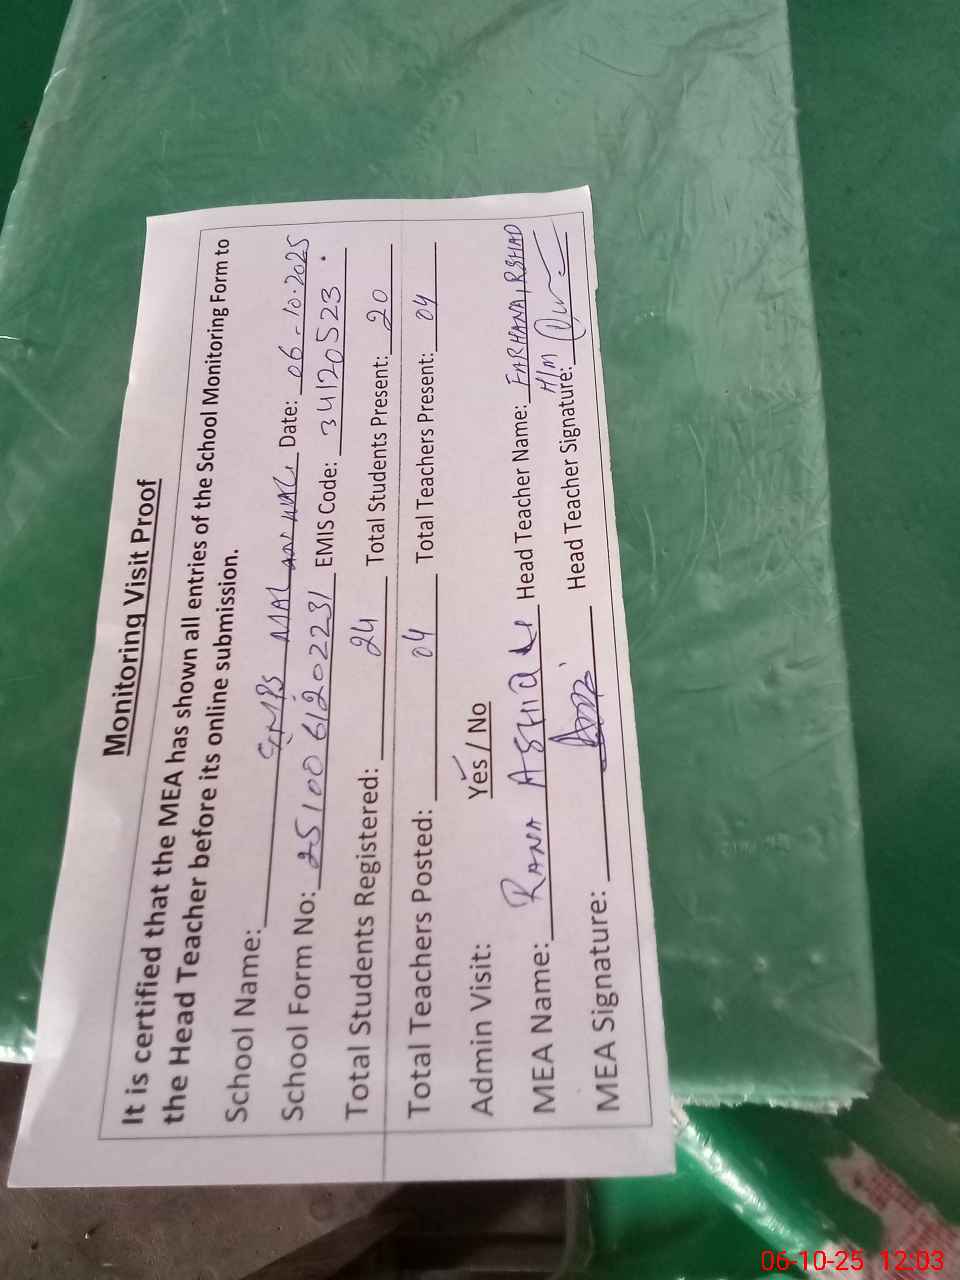 Monitoring Visit Proof
It is certified that the MEA has shown all entries of the School Monitoring Form to
the Head Teacher before its online submission.
School Name: GMPS Date: 06-10-2025
School Form No: 2510061202231 EMIS Code: 34120523
Total Students Registered: 24 Total Students Present: 20
Total Teachers Posted: 04 Total Teachers Present: 04
Admin Visit: Yes / No
MEA Name: RANA Head Teacher Name: FARHANA IRSHAD
H/M
MEA Signature: Head Teacher Signature:
06-10-25 12:03